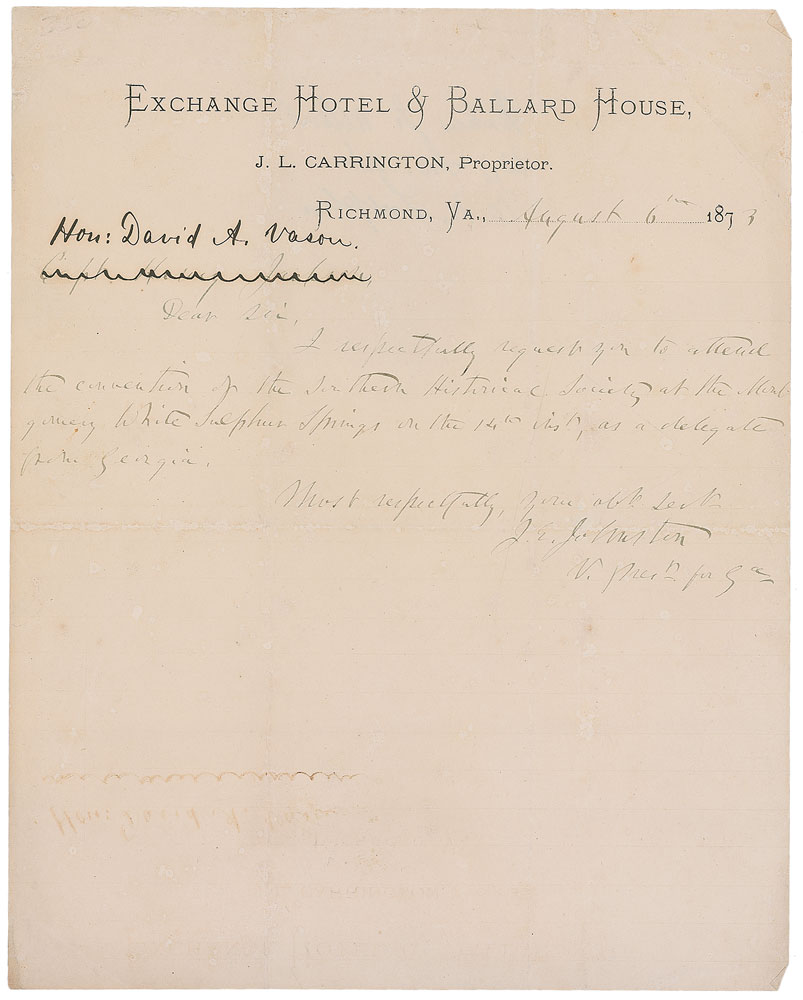 EXCHANGE HOTEL & BALLARD HOUSE,
J. L. CARRINGTON, Proprietor.
RICHMOND, VA., August 6th 1873
Hon: David A. Vason.
Dear Sir,
I respectfully request you to attend
the convention of the Southern Historical Society at the Mont-
gomery White Sulphur Springs on the 14th inst, as a delegate
from Georgia.
Most respectfully, your obt. servt.
J. E. Johnston
V. Prest. for Ga